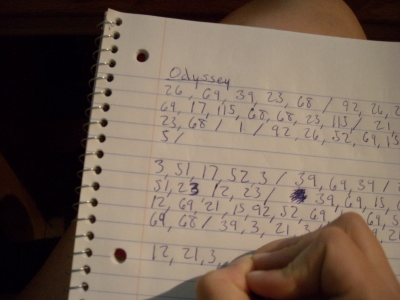 Odyssey
26, 69, 39, 23, 68 / 92, 26, 2
69, 17, 115, 68, 68, 23, 115 / 21
23, 68 / 1 / 92, 26, 52, 69, 15
5 /
3, 51, 17, 52, 3 / 39, 69, 34 /
51, 23 12, 23 / 39, 69, 15,
12, 69, 21, 15, 92, 52, 69,
69, 68 / 39, 3, 21, 3,
12, 21, 3,